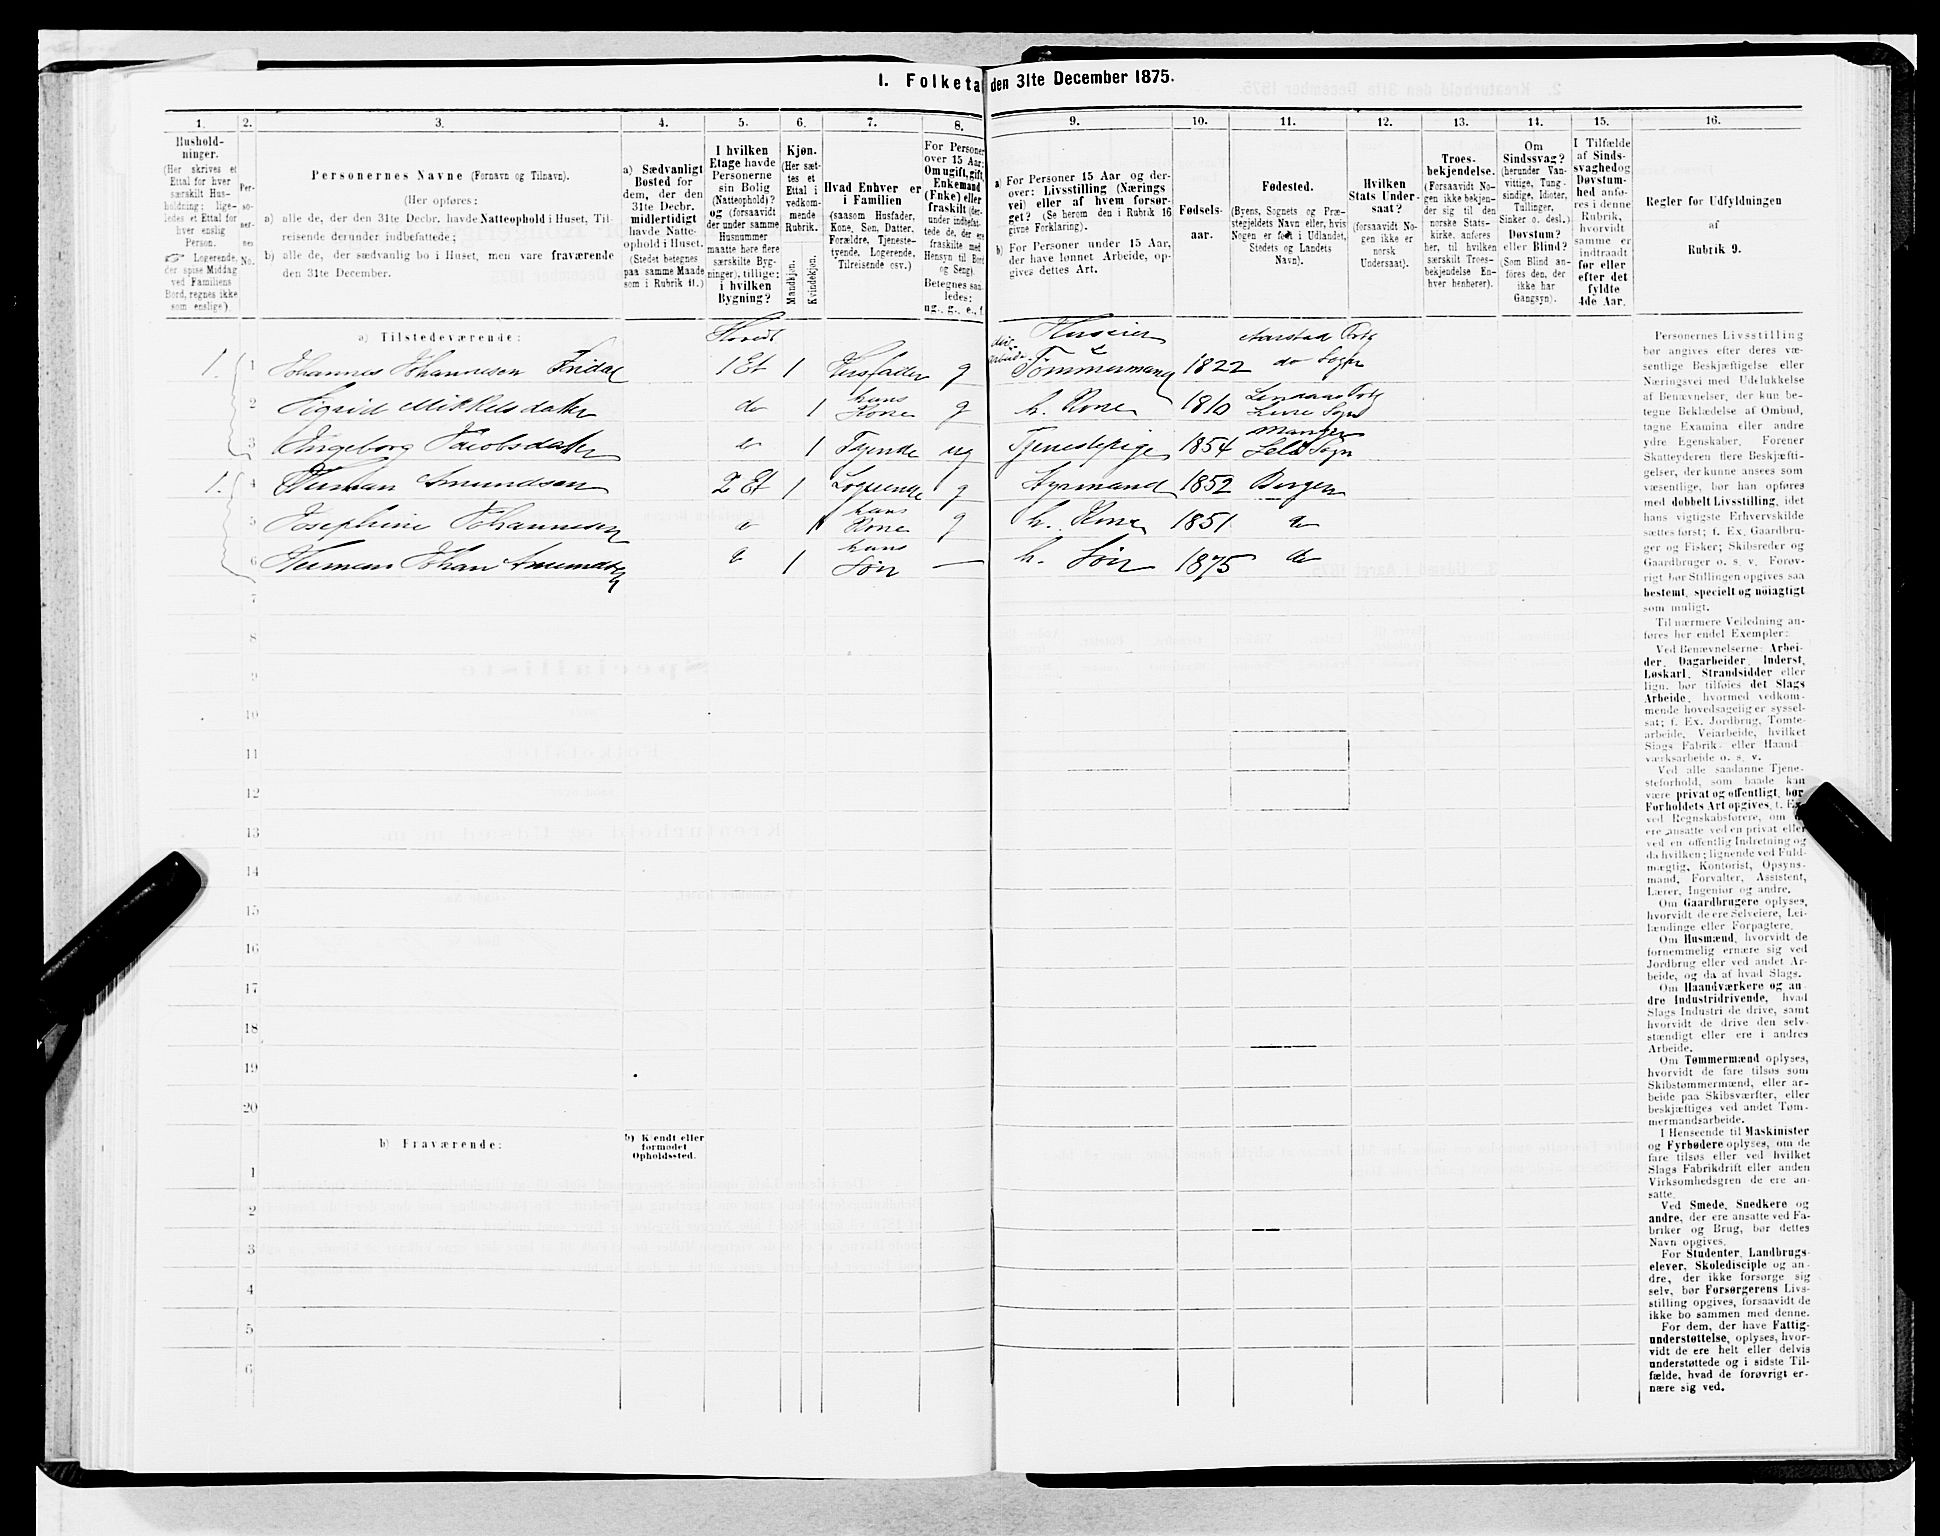 1. Folketal den 31te December 1875.
1.
2.
3.
4.
5.
6.
7.
8.
9.
10.
11.
12.
13.
14.
15.
16.
Hushold-
ninger.
(Her skrives et
Ettal for hver
særskilt Hus-
holdning; lige-
ledes et Ettal for
hver enslig
Person.
☞ Logerende,
der spise Middag
ved Familiens
Bord, regnes ikke
som enslige).
Per-
so-
ner-
nes
No.
Personernes Navne (Fornavn og Tilnavn).
(Her opføres:
a) alle de, der den 31te Decbr. havde Natteophold i Huset, Til-
reisende derunder indbefattede;
b) alle de, der sædvanlig bo i Huset, men vare fraværende
den 31te December.
a) Sædvanligt
Bosted for
dem, der den
31te Decbr.
midlertidigt
havde Natte-
ophold i Huset.
(Stedet betegnes
paa samme Maade
som i Rubrik 11.)
I hvilken
Etage havde
Personerne
sin Bolig
(Natteophold)?
og (forsaavidt
der under samme
Husnummer
maatte høre flere
særskilte Byg-
ninger), tillige:
i hvilken
Bygning?
Kjøn.
(Her sæt-
tes et
Ettal i
vedkom-
mende
Rubrik.
Mandkjøn.
Kvindekjøn.
Hvad Enhver er
i Familien
(saasom Husfader,
Kone, Søn, Datter,
Forældre, Tjeneste-
tyende, Logerende,
Tilreisende osv.)
For Personer
over 15 Aar:
Om ugift, gift,
Enkemand
(Enke) eller
fraskilt (der-
under indbefat-
tede de, der ere
fraskilte med
Hensyn til Bord
og Seng).
Betegnes saa-
ledes:
ug., g., e., f.
a) For Personer 15 Aar og der-
over: Livsstilling (Nærings
vei) eller af hvem forsør-
get? (Se herom den i Rubrik 16
givne Forklaring).
b) For Personer under 15 Aar,
der have lønnet Arbeide, op-
gives dettes Art.
Fødsels-
aar.
Fødested.
(Byens, Sognets og Præ-
stegjeldets Navn eller, hvis
Nogen er født i Udlandet,
Stedets og Landets
Navn).
Hvilken
Stats Under-
saat?
(forsaavidt No-
gen ikke er
norsk
Undersaat).
Troes-
bekjendelse.
(Forsaavidt No-
gen ikke bekjen-
der sig til den
norske Stats-
kirke, anføres
her, til hvilken
særskilt Troes-
bekjendelse En-
hver henhører).
Om
Sindssvag?
(herunder Van-
vittige, Tung-
sindige, Idioter,
Tullinger,
Sinker o. desl.)
Døvstum?
eller Blind?
(Som Blind an-
føres den, der
ikke har
Gangsyn).
I Tilfælde
af Sinds-
svaghed og
Døvstum-
hed anfø-
res i denne
Rubrik,
hvorvidt
samme er
indtraadt
før eller
efter det
fyldte
4de Aar.
Regler for Udfyldningen
af
Rubrik 9.
a) Tilstedeværende:
Hovedb
Huseier
Aarstad Prtg
1. 1 Johannes Johannesen Fridal 1 Et 1 Husfader g Tømmermand 1822 do Sogn
2 Sigrid Mikkelsdatter do 1 hans Kone g h. Kone 1810 Lindaas Prtg
3 Ingeborg Jacobsdatter do 1 Tyende ug Tjenestepige 1854 Manger Sogn
1. 4 Herman Amundsen 2 Et 1 Logerende g Styrmand 1852 Bergen
5 Josephine Johannesen do 1 hans Kone g h. Kone 1851 do
6 Herman Johan Amundsen do 1 hans Søn — h. Søn 1875 do
7
8
9
10
11
12
13
14
15
16
17
18
19
20
b) Fraværende:
b) Kjendt eller
formodet
Opholdssted.
1
2
3
4
5
6
Personernes Livsstilling
bør angives efter deres væ-
sentlige Beskjæftigelse eller
Næringsvei med Udelukkelse
af Benævnelser, der kun be-
tegne Beklædelse af Ombud,
tagne Examina eller andre
ydre Egenskaber. Forener
Skatteyderen flere Beskjæfti-
gelser, der kunne ansees som
væsentlige, bør han opføres
med dobbelt Livsstilling, idet
hans vigtigste Erhvervskilde
sættes først; f. Ex. Gaardbru-
ger og Fisker; Skibsreder og
Gaardbruger o. s. v. Forøv-
rigt bør Stillingen opgives saa
bestemt, specielt og nöiagtigt
som muligt.
Til nærmere Veiledning an-
føres her endel Exempler:
Ved Benævnelserne: Arbei-
der, Dagarbeider, Inderst,
Løskarl, Strandsidder eller
lign. bør tilføies det Slags
Arbeide, hvormed vedkom-
mende hovedsagelig er syssel-
sat; f. Ex. Jordbrug, Tomte-
arbeide, Veiarbeide, hvilket
Slags Fabrik- eller Haand-
værksarbeide o. s. v.
Ved alle saadanne Tjene-
steforhold, som baade kan
være privat og offentligt, bør
Forholdets Art opgives, f. Ex.
ved Regnskabsførere, om de
ere ansatte ved en privat eller
ved en offentlig Indretning og
da hvilken; lignende ved Fuld-
mægtig, Kontorist, Opsyns-
mand, Forvalter, Assistent,
Lærer, Ingeniør og andre.
Om Gaardbrugere oplyses,
hvorvidt de ere Selveiere, Lei-
lændinge eller Forpagtere.
Om Husmænd, hvorvidt de
fornemmelig ernære sig ved
Jordbrug eller ved andet Ar-
beide, og da af hvad Slags.
Om Haandværkere og an-
dre Industridrivende, hvad
Slags Industri de drive, samt
hvorvidt de drive den selv-
stændigt eller ere i andres
Arbeide.
Om Tømmermænd oplyses,
hvorvidt de fare tilsøs som
Skibstømmermænd, eller ar-
beide paa Skibsværfter, eller
beskjæftiges ved andet Tøm-
mermandsarbeide.
I Henseende til Maskinister
og Fyrbødere oplyses, om de
fare tilsøs eller ved hvilket
Slags Fabrikdrift eller anden
Virksomhedsgren de ere an-
satte.
Ved Smede, Snedkere og
andre, der ere ansatte ved Fa-
briker og Brug, bør dettes
Navn opgives.
For Studenter, Landbrugs-
elever, Skoledisciple og an-
dre, der ikke forsørge sig
selv, bør Forsørgerens Livs-
stilling opgives, forsaavidt de
ikke bo sammen med denne.
For dem, der have Fattig-
understøttelse, oplyses, hvor-
vidt de ere helt eller delvis
understøttede og i sidste Til-
fælde, hvad de forøvrigt er-
nære sig ved.